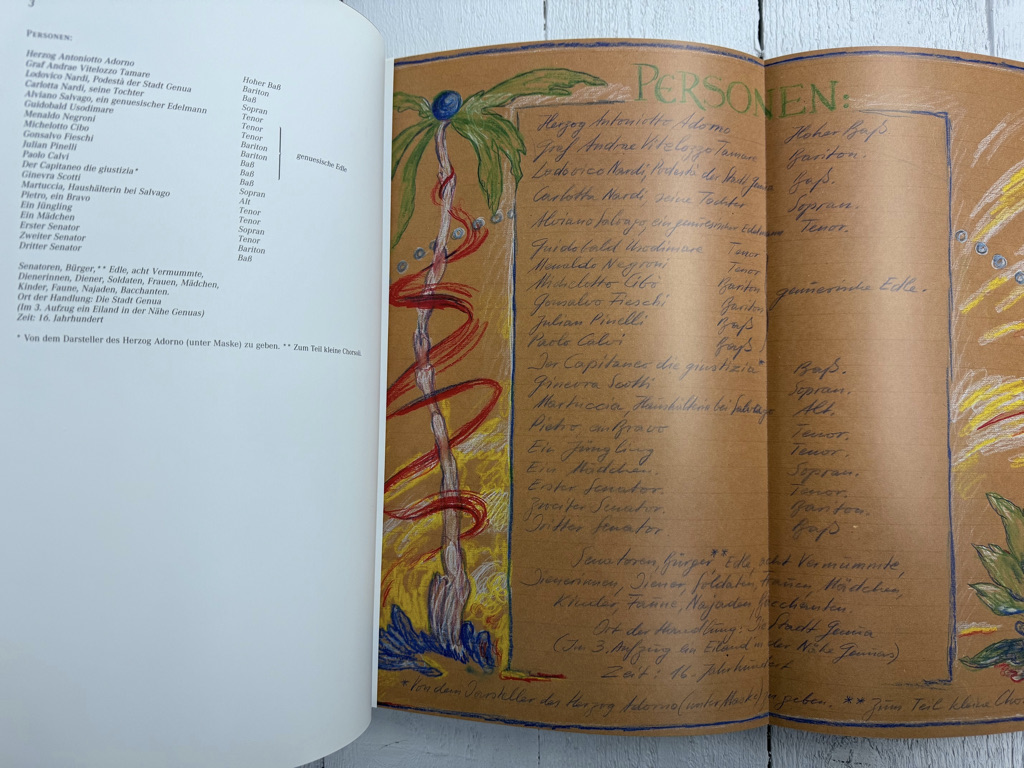 PERSONEN:
Herzog Antoniotto Adorno Hoher Baß
Graf Andrae Vitelozzo Tamare Bariton
Lodovico Nardi, Podestà der Stadt Genua Baß
Carlotta Nardi, seine Tochter Sopran
Alviano Salvago, ein genuesischer Edelmann Tenor
Guidobald Usodimare Tenor
Menaldo Negroni Tenor
Michelotto Cibo Bariton
Gonsalvo Fieschi Bariton
Julian Pinelli Baß
Paolo Calvi Baß
genuesische Edle
Der Capitaneo die giustizia* Baß
Ginevra Scotti Sopran
Martuccia, Haushälterin bei Salvago Alt
Pietro, ein Bravo Tenor
Ein Jüngling Tenor
Ein Mädchen Sopran
Erster Senator Tenor
Zweiter Senator Bariton
Dritter Senator Baß
Senatoren, Bürger,** Edle, acht Vermummte,
Dienerinnen, Diener, Soldaten, Frauen, Mädchen,
Kinder, Faune, Najaden, Bacchanten.
Ort der Handlung: Die Stadt Genua
(Im 3. Aufzug ein Eiland in der Nähe Genuas)
Zeit: 16. Jahrhundert
* Von dem Darsteller des Herzog Adorno (unter Maske) zu geben. ** Zum Teil kleine Chorsoli.
PERSONEN:
Herzog Antoniotto Adorno Hoher Baß
Graf Andrae Vitelozzo Tamare Bariton.
Lodovico Nardi, Podestà der Stadt Genua Baß.
Carlotta Nardi, seine Tochter Sopran.
Alviano Salvago, ein genuesischer Edelmann Tenor.
Guidobald Usodimare Tenor
Menaldo Negroni Tenor
Michelotto Cibò Bariton
genuesische Edle.
Gonsalvo Fieschi Bariton
Julian Pinelli Baß
Paolo Calvi Baß
Der Capitaneo die giustizia* Baß.
Ginevra Scotti Sopran.
Martuccia, Haushälterin bei Salvago Alt.
Pietro ein Bravo Tenor.
Ein Jüngling Tenor.
Ein Mädchen. Sopran.
Erster Senator. Tenor.
Zweiter Senator. Bariton.
Dritter Senator Baß
Senatoren, Bürger** Edle, acht Vermummte,
Dienerinnen, Diener, Soldaten, Frauen, Mädchen,
Kinder, Faune, Najaden, Bacchanten.
Ort der Handlung: Die Stadt Genua
(Im 3. Aufzug ein Eiland in der Nähe Genuas)
Zeit: 16. Jahrhundert
* Von dem Darsteller des Herzog Adorno (unter Maske) zu geben. ** Zum Teil kleine